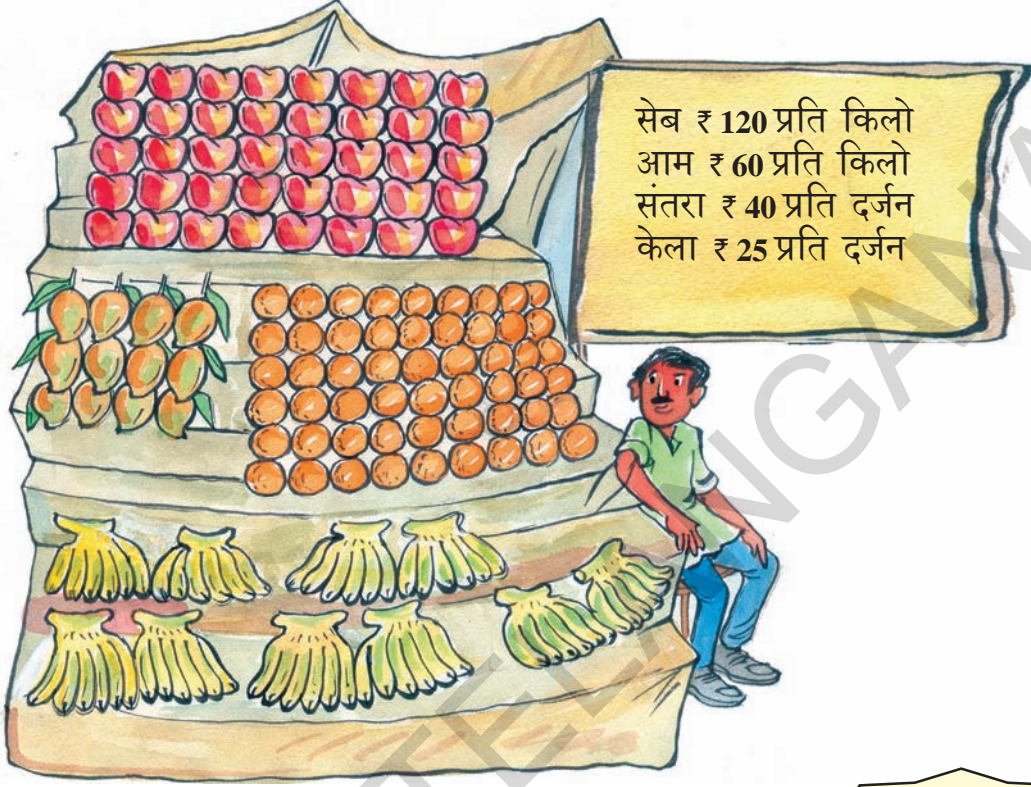 सेब ₹ 120 प्रति किलो
आम ₹ 60 प्रति किलो
संतरा ₹ 40 प्रति दर्जन
केला ₹ 25 प्रति दर्जन
TELANGANA